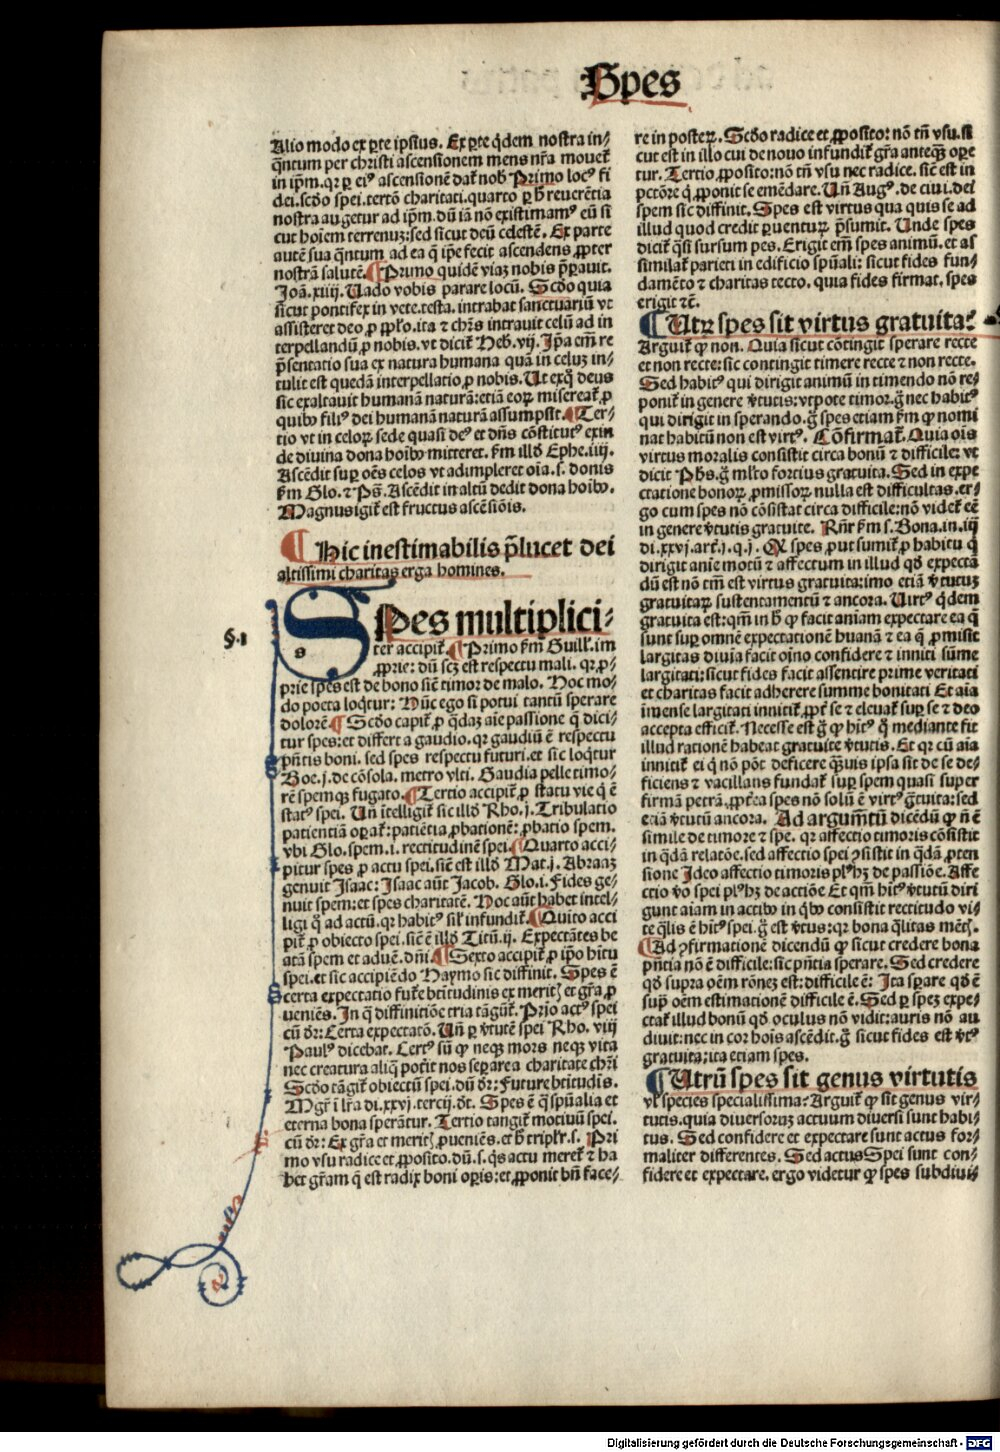 Spes
Alio modo ex ꝑte ipsius. Ex ꝑte q̄dem nostra in⸗
q̄ntum per christi ascensionem mens nr̄a mouet᷑
in ip̄m. qꝛ ꝑ eiꝰ ascensionē dat᷑ nob̄ Primo locꝰ fi
dei. scḋo spei. tertō charitati. quarto ꝑ h̄ reuerētia
nostra augetur ad ip̄m. dū iā nō existimamꝰ eū si
cut hoīem terrenuꝫ: sed sicut deū celestē. Ex parte
autē sua q̄ntum ad ea q̄ ip̄e fecit ascendens ꝓpter
nostrā salutē. ¶ Primo quidē viaꝫ nobis p̄parauit.
Joā. xiiij. Uado vobis parare locū. Scḋo quia
sicut pontifex in vete. testa. intrabat sanctuariū vt
assisteret deo ꝓ pp̄lo. ita ⁊ chr̄s intrauit celū ad in
terpellandū ꝓ nobis. vt dicit᷑ Heb. vij. Ip̄a em̄ re
p̄sentatio sua ex natura humana quā in celuꝫ in⸗
tulit est quedā interpellatio ꝓ nobis. Ut ex q̊ deus
sic exaltauit humanā naturā: etiā eoꝝ misereat᷑ ꝓ
quibꝰ filiꝰ dei humanā naturā assumpsit. ¶ Ter⸗
tio vt in celoꝝ sede quasi deꝰ et dn̄s cōstitutꝰ exin
de diuina dona hoībꝰ mitteret. ẜm illḋ Ephe. iiij.
Ascēdit suꝑ oēs celos vt adimpleret oīa. s. donis
ẜm Glo. ⁊ Ps̄. Ascēdit in altū dedit dona hoībꝰ.
Magnus igit᷑ est fructus ascēsiōis.
¶ Hic inestimabilis p̄lucet dei
altissimi charitas erga homines.
§. 1
SPes multiplici⸗
ter accipit᷑. ¶ Primo ẜm Guill. im
ꝓprie: dū scꝫ est respectu mali. qꝛ ꝓ⸗
prie spes est de bono sic̄ timor de malo. Hoc mo⸗
do poeta loq̄tur: Nūc ego si potui tantū sperare
dolorē. ¶ Scḋo capit᷑ ꝓ q̄daꝫ aīe passione q̄ dici⸗
tur spes: et differt a gaudio. qꝛ gaudiū ē respectu
pn̄tis boni. sed spes respectu futuri. et sic loq̄tur
Boe. j. de cōsola. metro vlti. Gaudia pelle timo⸗
rē spemqꝫ fugato. ¶ Tertio accipit᷑ ꝓ statu vie q̄ ē
statꝰ spei. Un̄ ītelligit᷑ sic illḋ Rho. j. Tribulatio
patientiā oꝑat᷑: patiētia ꝓbationē: ꝓbatio spem.
vbi Glo. spem. i. rectitudinē spei. ¶ Quarto acci⸗
pitur spes ꝓ actu spei. sic̄ est illḋ Mat. j. Abraaꝫ
genuit Isaac: Isaac aūt Jacob. Glo. i. Fides ge⸗
nuit spem: et spes charitatē. Hoc aūt habet intel⸗
ligi q̊ ad actū. qꝛ habitꝰ sil᷑ infundit᷑. ¶ Quīto acci
pit᷑ ꝓ obiecto spei. sic̄ ē illḋ Titū. ij. Expectātes be
atā spem et aduē. dn̄i. ¶ Sexto accipit᷑ ꝓ ip̄o hītu
spei. et sic accipiēdo Haymo sic diffinit. Spes ē
certa expectatio fut᷑e btītudinis ex meritꝭ et gr̄a ꝓ
ueniēs. In q̄ diffinitiōe tria tāgūt᷑. Prīo actꝰ spei
cū dr̄: Certa expectatō. Un̄ ꝑ v̄tutē spei Rho. viij
Paulꝰ dicebat. Certꝰ sū ꝙ neqꝫ mors neqꝫ vita
nec creatura aliq̄ pot̄it nos seꝑare a charitate chr̄i
Scḋo tāgit᷑ obiectū spei. dū dr̄: Future btītudīs.
Mgr̄ ī lr̄a di. xxvj. tercij. dt̄. Spes ē q̄ spūalia et
eterna bona sperātur. Tertio tangit᷑ motiuū spei.
cū dr̄: Ex gr̄a et meritꝭ ꝓueniēs. et h̄ tripl᷑r. s. Pri
mo vsu radice et ꝓposito. dū. s. q̄s actu meret᷑ ⁊ ha
bet gr̄am q̄ est radix boni oꝑis: et ꝓponit bn̄ face⸗
re in posteꝝ. Scḋo radice et ꝓposito: nō tn̄ vsu. si
cut est in illo cui de nouo infundit᷑ gr̄a anteqꝫ oꝑe
tur. Tertio ꝓposito: nō tn̄ vsu nec radice. sic̄ est in
pctōre q̄ ꝓponit se emēdare. Un̄ Augꝰ. de ciui. dei
spem sic diffinit. Spes est virtus qua quis se ad
illud quod credit ꝑuentuꝝ p̄sumit. Unde spes
dicit᷑ q̄si sursum pes. Erigit em̄ spes animū. et as
similat᷑ parieti in edificio spūali: sicut fides fun⸗
damēto ⁊ charitas tecto. quia fides firmat. spes
erigit ⁊c̄.
¶ Utꝝ spes sit virtus gratuita?
Arguit᷑ ꝙ non. Quia sicut cōtingit sperare recte
et non recte: sic contingit timere recte ⁊ non recte.
Sed habitꝰ qui dirigit animū in timendo nō re⸗
ponit᷑ in genere v̄tutis: vtpote timor. g̊ nec habitꝰ
qui dirigit in sperando. g̊ spes etiam ẜm ꝙ nomi
nat habitū non est virtꝰ. Cōfirmat᷑. Quia oīs
virtus moralis consistit circa bonū ⁊ difficile: vt
dicit Ph̄s. g̊ ml̄to fortius gratuita. Sed in expe
ctatione honoꝝ ꝓmissoꝝ nulla est difficultas. er⸗
go cum spes nō cōsistat circa difficile: nō videt᷑ eē
in genere v̄tutis gratuite. Rn̄r ẜm s. Bona. in. iij
di. xxvj. art. j. q. j. Ꝙ spes ꝓut sumit᷑ ꝓ habitu q̄
dirigit anīe motū ⁊ affectum in illud qḋ expectā
dū est nō tm̄ est virtus gratuita: imo etiā v̄tutuꝫ
gratuitaꝝ sustentamentū ⁊ ancora. Uirtꝰ q̄dem
gratuita est: qm̄ in h̄ ꝙ facit aniam expectare ea q̄
sunt suꝑ omnē expectationē huanā ⁊ ea q̄ ꝓmisit
largitas diuīa facit oīno confidere ⁊ inniti sūme
largitati: sicut fides facit assentire prime veritati
et charitas facit adherere summe bonitati Et aīa
īmense largitati innitit᷑ ꝓpt̄ se ⁊ eleuat᷑ suꝑ se ⁊ deo
accepta efficit᷑. Necesse est g̊ ꝙ hītꝰ q̊ mediante fit
illud rationē habeat gratuite v̄tutis. Et qꝛ cū aīa
innitit᷑ ei q̄ nō pōt deficere q̄uis ipsa sit de se de⸗
ficiens ⁊ vacillans fundat᷑ suꝑ spem quasi super
firmā petrā. ꝓpt̄ea spes nō solū ē virtꝰ gr̄tuita: sed
etiā v̄tutū ancora. Ad argumētū dicēdū ꝙ n̄ ē
simile de timore ⁊ spe. qꝛ affectio timoris cōsistit
in q̄dā relatōe. sed affectio spei ꝯsistit in q̄dā ꝓten
sione Ideo affectio timoris pl᷑ꝰ hꝫ de passiōe. Affe
ctio v̊o spei pl᷑ꝰ hꝫ de actiōe Et qm̄ hītꝰ v̄tutū diri
gunt aiam in actibꝰ in q̄bꝰ consistit rectitudo vi⸗
te q̄lis ē hītꝰ spei. g̊ est v̄tus: qꝛ bona q̄litas mētꝭ.
¶ Ad ꝯfirmationē dicendū ꝙ sicut credere bona
pn̄tia nō ē difficile: sic pn̄tia sperare. Sed credere
qḋ supra oēm rōneꝫ est: difficile ē: Ita sꝑare qḋ ē
suꝑ oēm estimationē difficile ē. Sed ꝑ speꝫ expe⸗
ctat᷑ illud bonū qḋ oculus nō vidit: auris nō au
diuit: nec in cor hoīs ascēdit. g̊ sicut fides est v̄tꝰ
gratuita: ita etiam spes.
¶ Utrū spes sit genus virtutis
vl᷑ species specialissima? Arguit᷑ ꝙ sit genus vir⸗
tutis. quia diuersoruꝫ actuum diuersi sunt habi⸗
tus. Sed confidere et expectare sunt actus for⸗
maliter differentes. Sed actus Spei sunt con⸗
fidere et expectare. ergo videtur ꝙ spes subdiui⸗
Digitalisierung gefördert durch die Deutsche Forschungsgemeinschaft - DFG